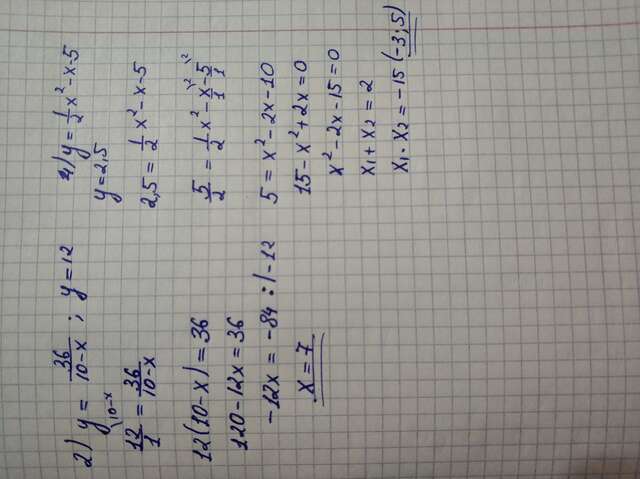 2) y = 36/10-x ; y = 12
12/1 \10-x = 36/10-x
12(10-x) = 36
120-12x = 36
-12x = -84 :/-12
x = 7
4) y = 1/2 x²-x-5
y = 2,5
2,5 = 1/2 x²-x-5
5/2 = 1/2 x² - x\2/1 - 5\2/1
5 = x²-2x-10
15-x²+2x=0
x²-2x-15=0
x₁+x₂ = 2
x₁·x₂ = -15 (-3;5)